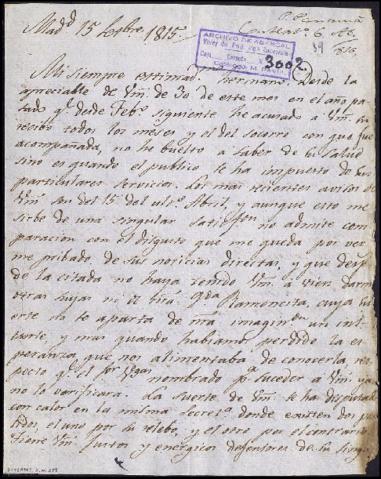 Madd 15 Sbre 1815.
6
1815.
ARCHIVO DE ABASCAL
3002
Mi siempre estimado hermano: Desde la
apreciable de Vm. de 30 de este mes en el año pa
sado qe desde Febo siguiente he acusado a Vm. su
recibo todos los meses y el del socorro con que
acompañaba, no he buelto a saber de su salud
sino es quando el publico se ha impuesto de sus
particulares servicios. Los mas recientes avisos de
Vm. son del 15 del ulto Abril, y aunque esto me
sirbe de una singular satisfon no admite com
paracion con el disgusto que me queda por ver
me privado de sus noticias directas, y que desps
de la citada no haya tenido Vm. a vien darme
otras suyas ni de mi Qda Ramoncita, cuya
suerte no se aparta de mra imaginon un ins
tante, y mas quando habiamos perdido la es
peranza, que nos alimentaba de conocerla, res
pecto qe el Sor nombrado pa suceder a Vm. ya
no lo verificara. La suerte de Vm. se ha disputado
con calor en la misma Secreta donde existen dos par
tidos, el uno por su relebo, y el otro por el contrario,
tiene Vm. justos y energicos defensores de su singu